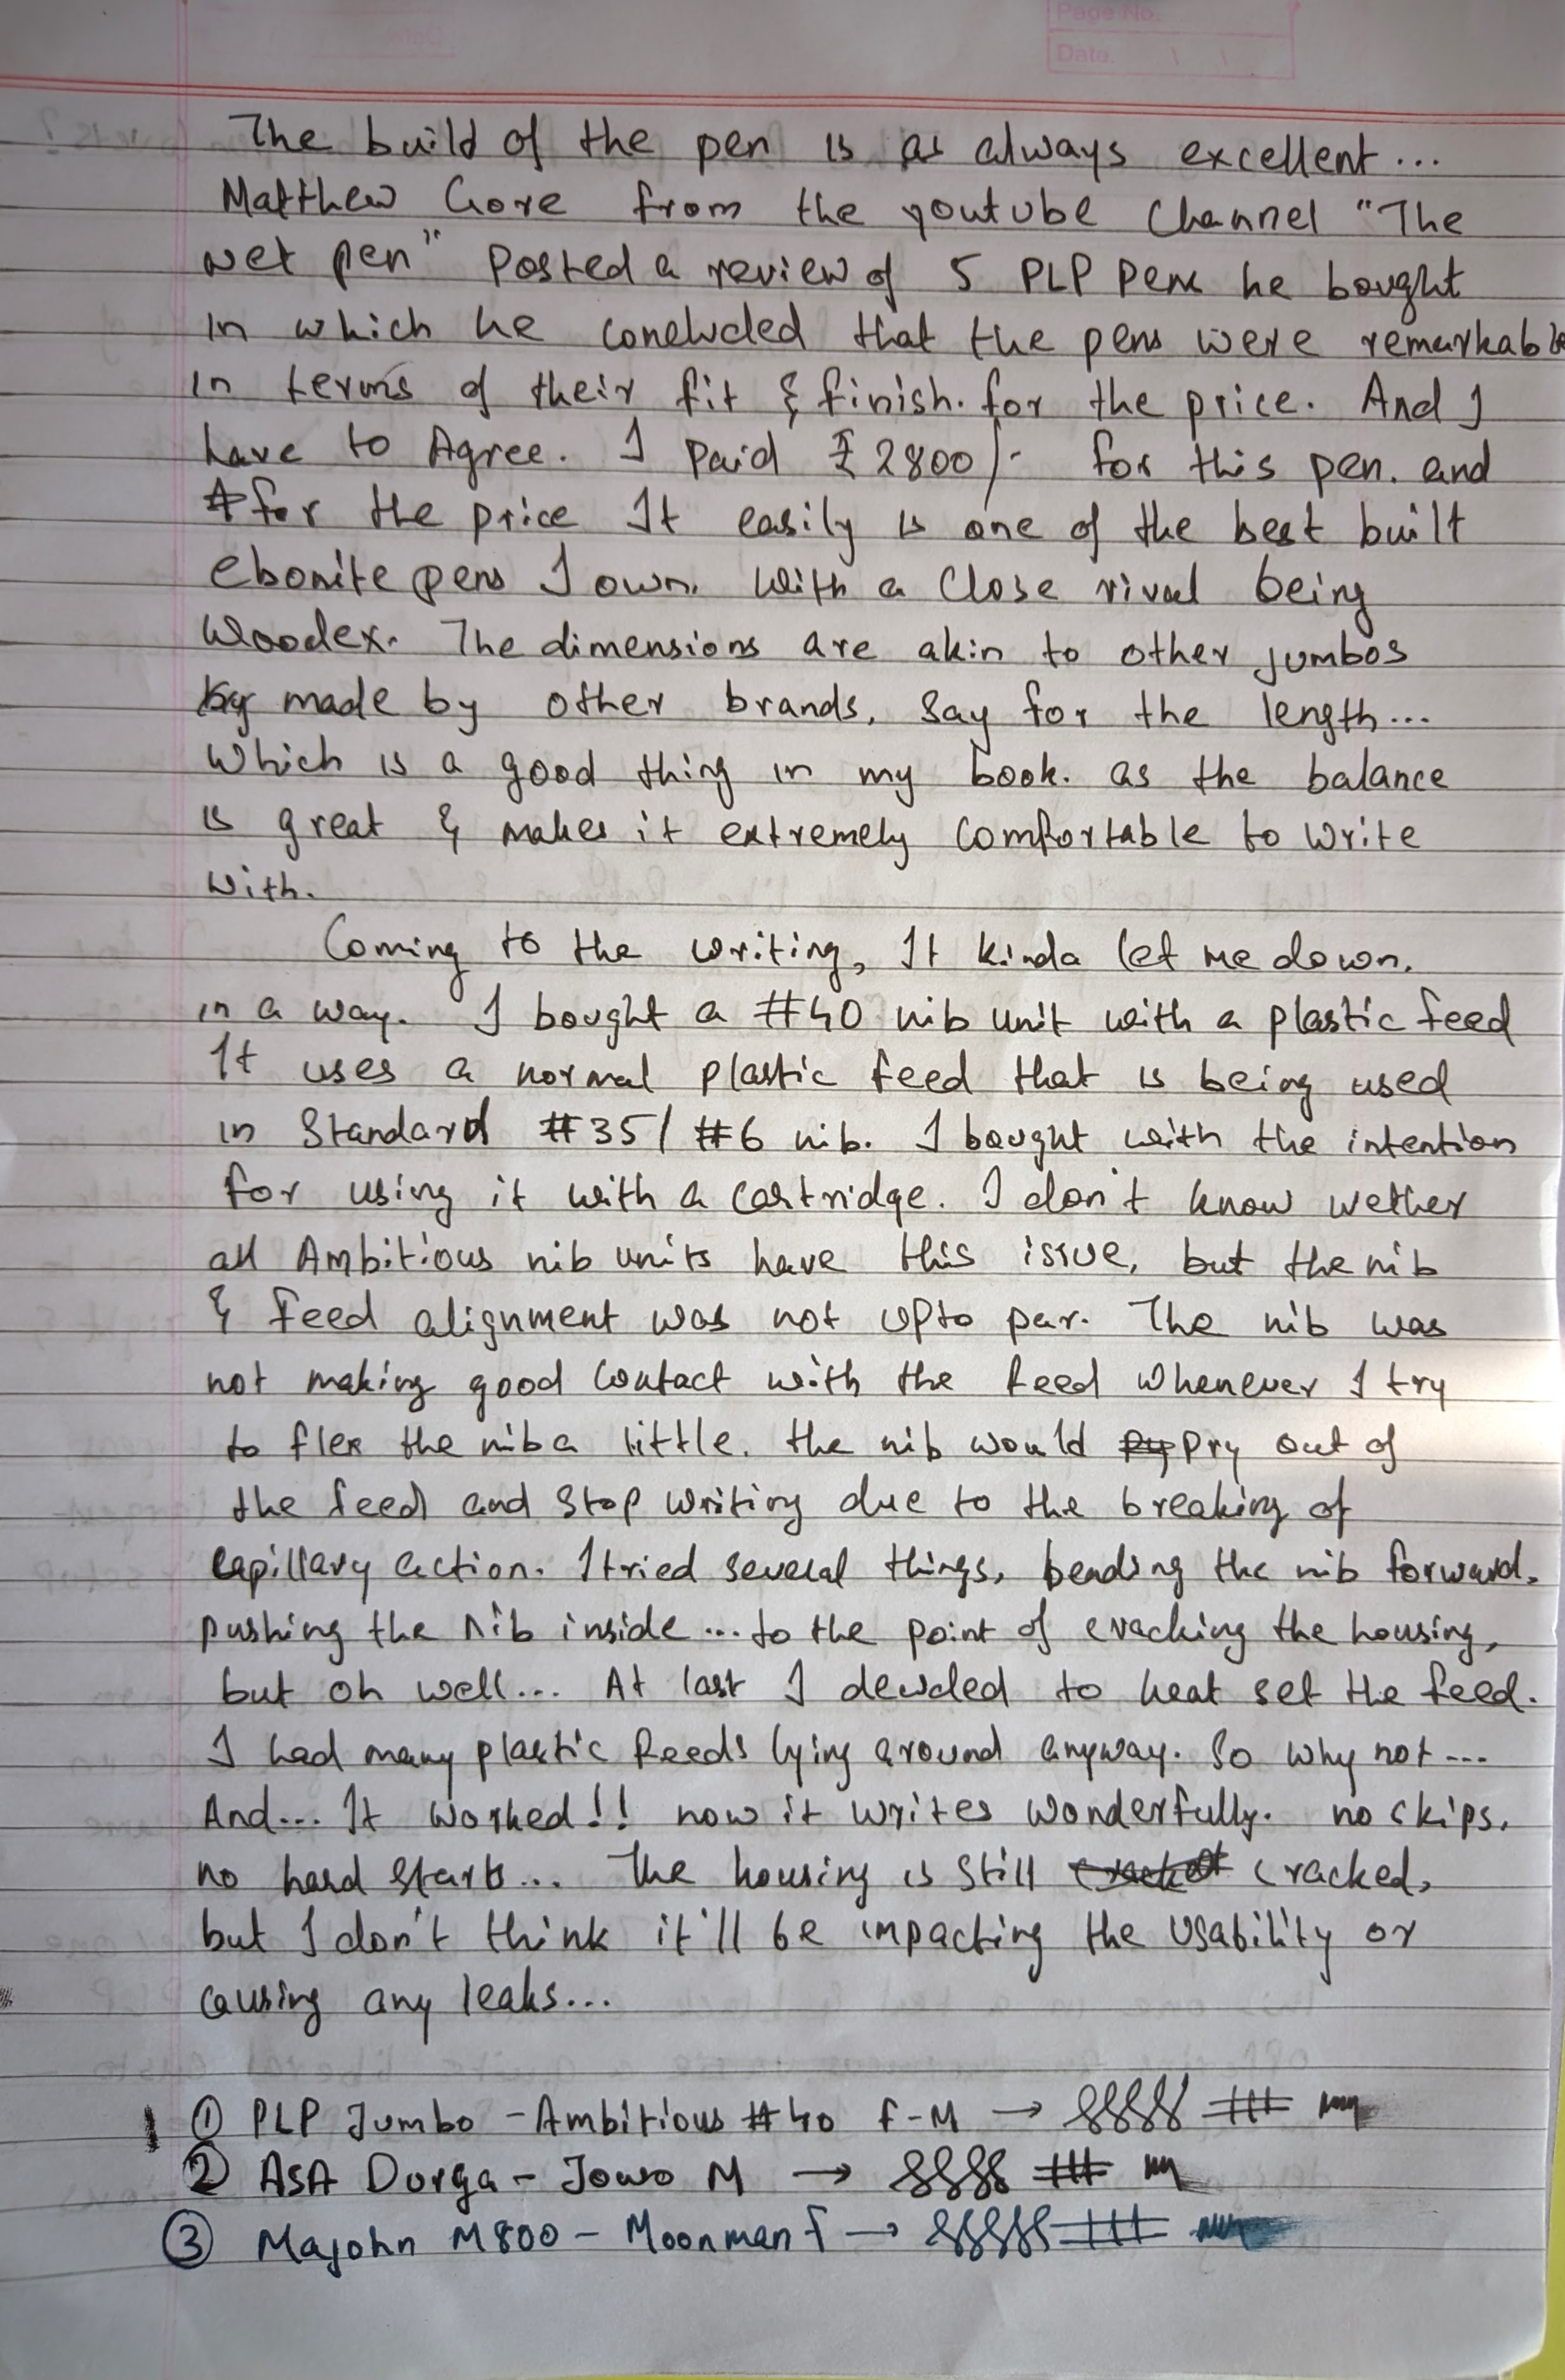 Page No.
Date.
The build of the pen is as always excellent...
Matthew Gore from the youtube Channel "The
wet pen" Posted a review of 5 PLP Pens he bought
in which he concluded that the pens were remarkable
in terms of their fit & finish. for the price. And I
have to Agree. I Paid ₹2800/- for this pen. and
for the price It easily is one of the best built
ebonite pens I own. With a Close rival being
Woodex. The dimensions are akin to other jumbos
made by other brands, Say for the length...
Which is a good thing in my book. as the balance
is great & makes it extremely Comfortable to Write
With.
Coming to the writing, It kinda let me down.
in a way. I bought a #40 nib unit with a plastic feed
It uses a normal plastic feed that is being used
in Standard #35/ #6 nib. I bought with the intention
for using it with a cartridge. I don't know wether
all Ambitious nib units have this issue, but the nib
& feed alignment was not upto par. The nib was
not making good Contact with the feed Whenever I try
to flex the nib a little. the nib would pry out of
the feed and Stop Writing due to the breaking of
capillary action. I tried several things, bending the nib forward,
pushing the nib inside... to the point of cracking the housing,
but oh well... At last I decided to heat set the feed.
I had many plastic feeds lying around anyway. So why not...
And... It Worked!! now it writes Wonderfully. no skips,
no hard starts... The housing is Still cracked,
but I don't think it'll be impacting the Usability or
Causing any leaks...
① PLP Jumbo - Ambitious #40 F-M →
② ASA Durga - Jowo M →
③ Majohn M800 - Moonman f →